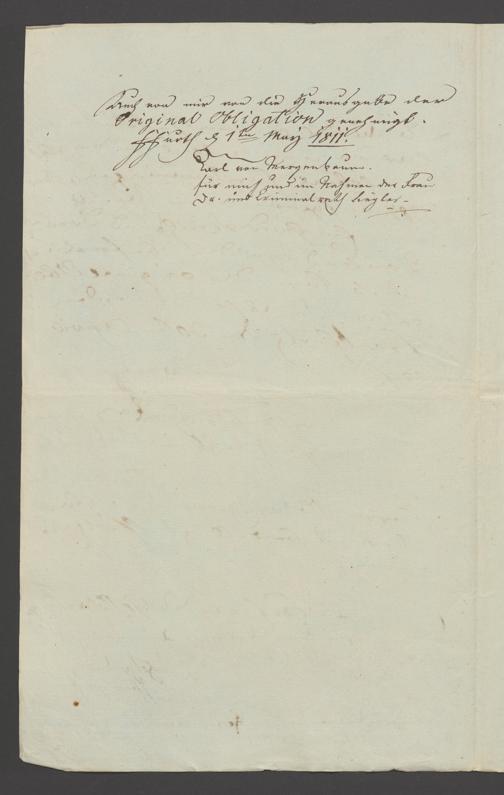 Auch von mir von die Herausgabe der
Original Obligation genehmigt.
Ffurth d 1ten May 1811.
Carl von Mergenbaum.
für mich und im Nahmen der Frau
Dr. und Criminalrath Siegler